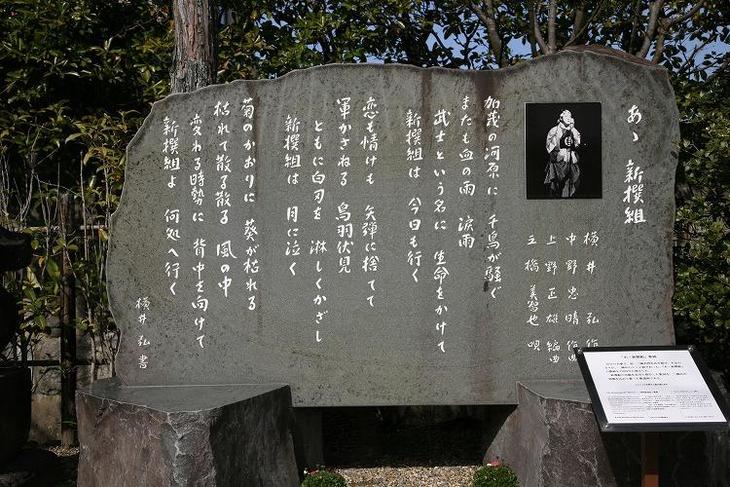 あゝ 新撰組
横井 弘 作
中野忠晴 作曲
上野正雄 編曲
三橋美智也 唄
加茂の河原に 千鳥が騒ぐ
またも血の雨 涙雨
武士という名に 生命をかけて
新撰組は 今日も行く
恋も情けも 矢弾に捨てて
軍かさねる 鳥羽伏見
ともに白刃を 淋しくかざし
新撰組は 月に泣く
菊のかおりに 葵が枯れる
枯れて散る散る 風の中
変わる時勢に 背中を向けて
新撰組よ 何処へ行く
横井弘書